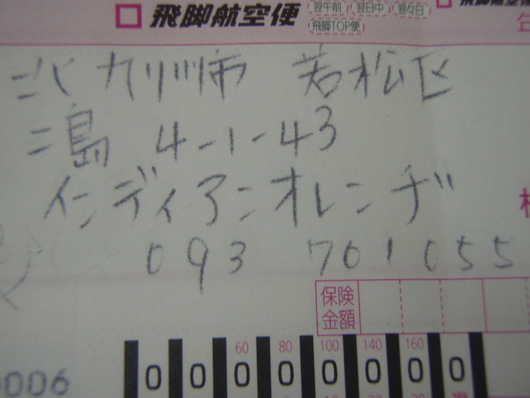 飛脚航空便 翌午前 翌日中 翌々日
飛脚TOP便
北九州市 若松区
二島 4-1-43
インディアンオレンヂ
093 701 1055
保険
金額
60 80 100 140 160
0 0 0 0 0 0 0 0
0006